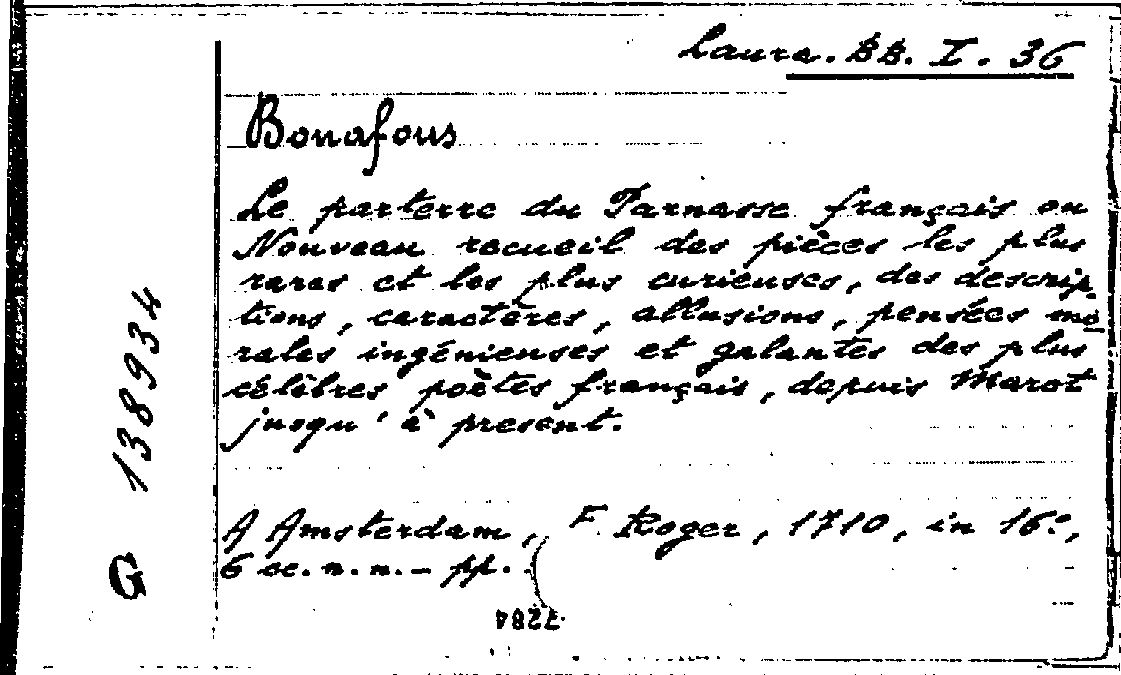 Laura. BB. I. 36
Bonafous
Le parterre du Parnasse français ou
Nouveau recueil des pièces les plus
rares et les plus curieuses, des descrip-
tions, caractères, allusions, pensées mo
rales ingénieuses et galantes des plus
célèbres poètes français, depuis Marot
jusqu'à present.
A Amsterdam, F. Roger, 1710, in 16°,
6 cc. n. n. - pp. (
7284
G 138934